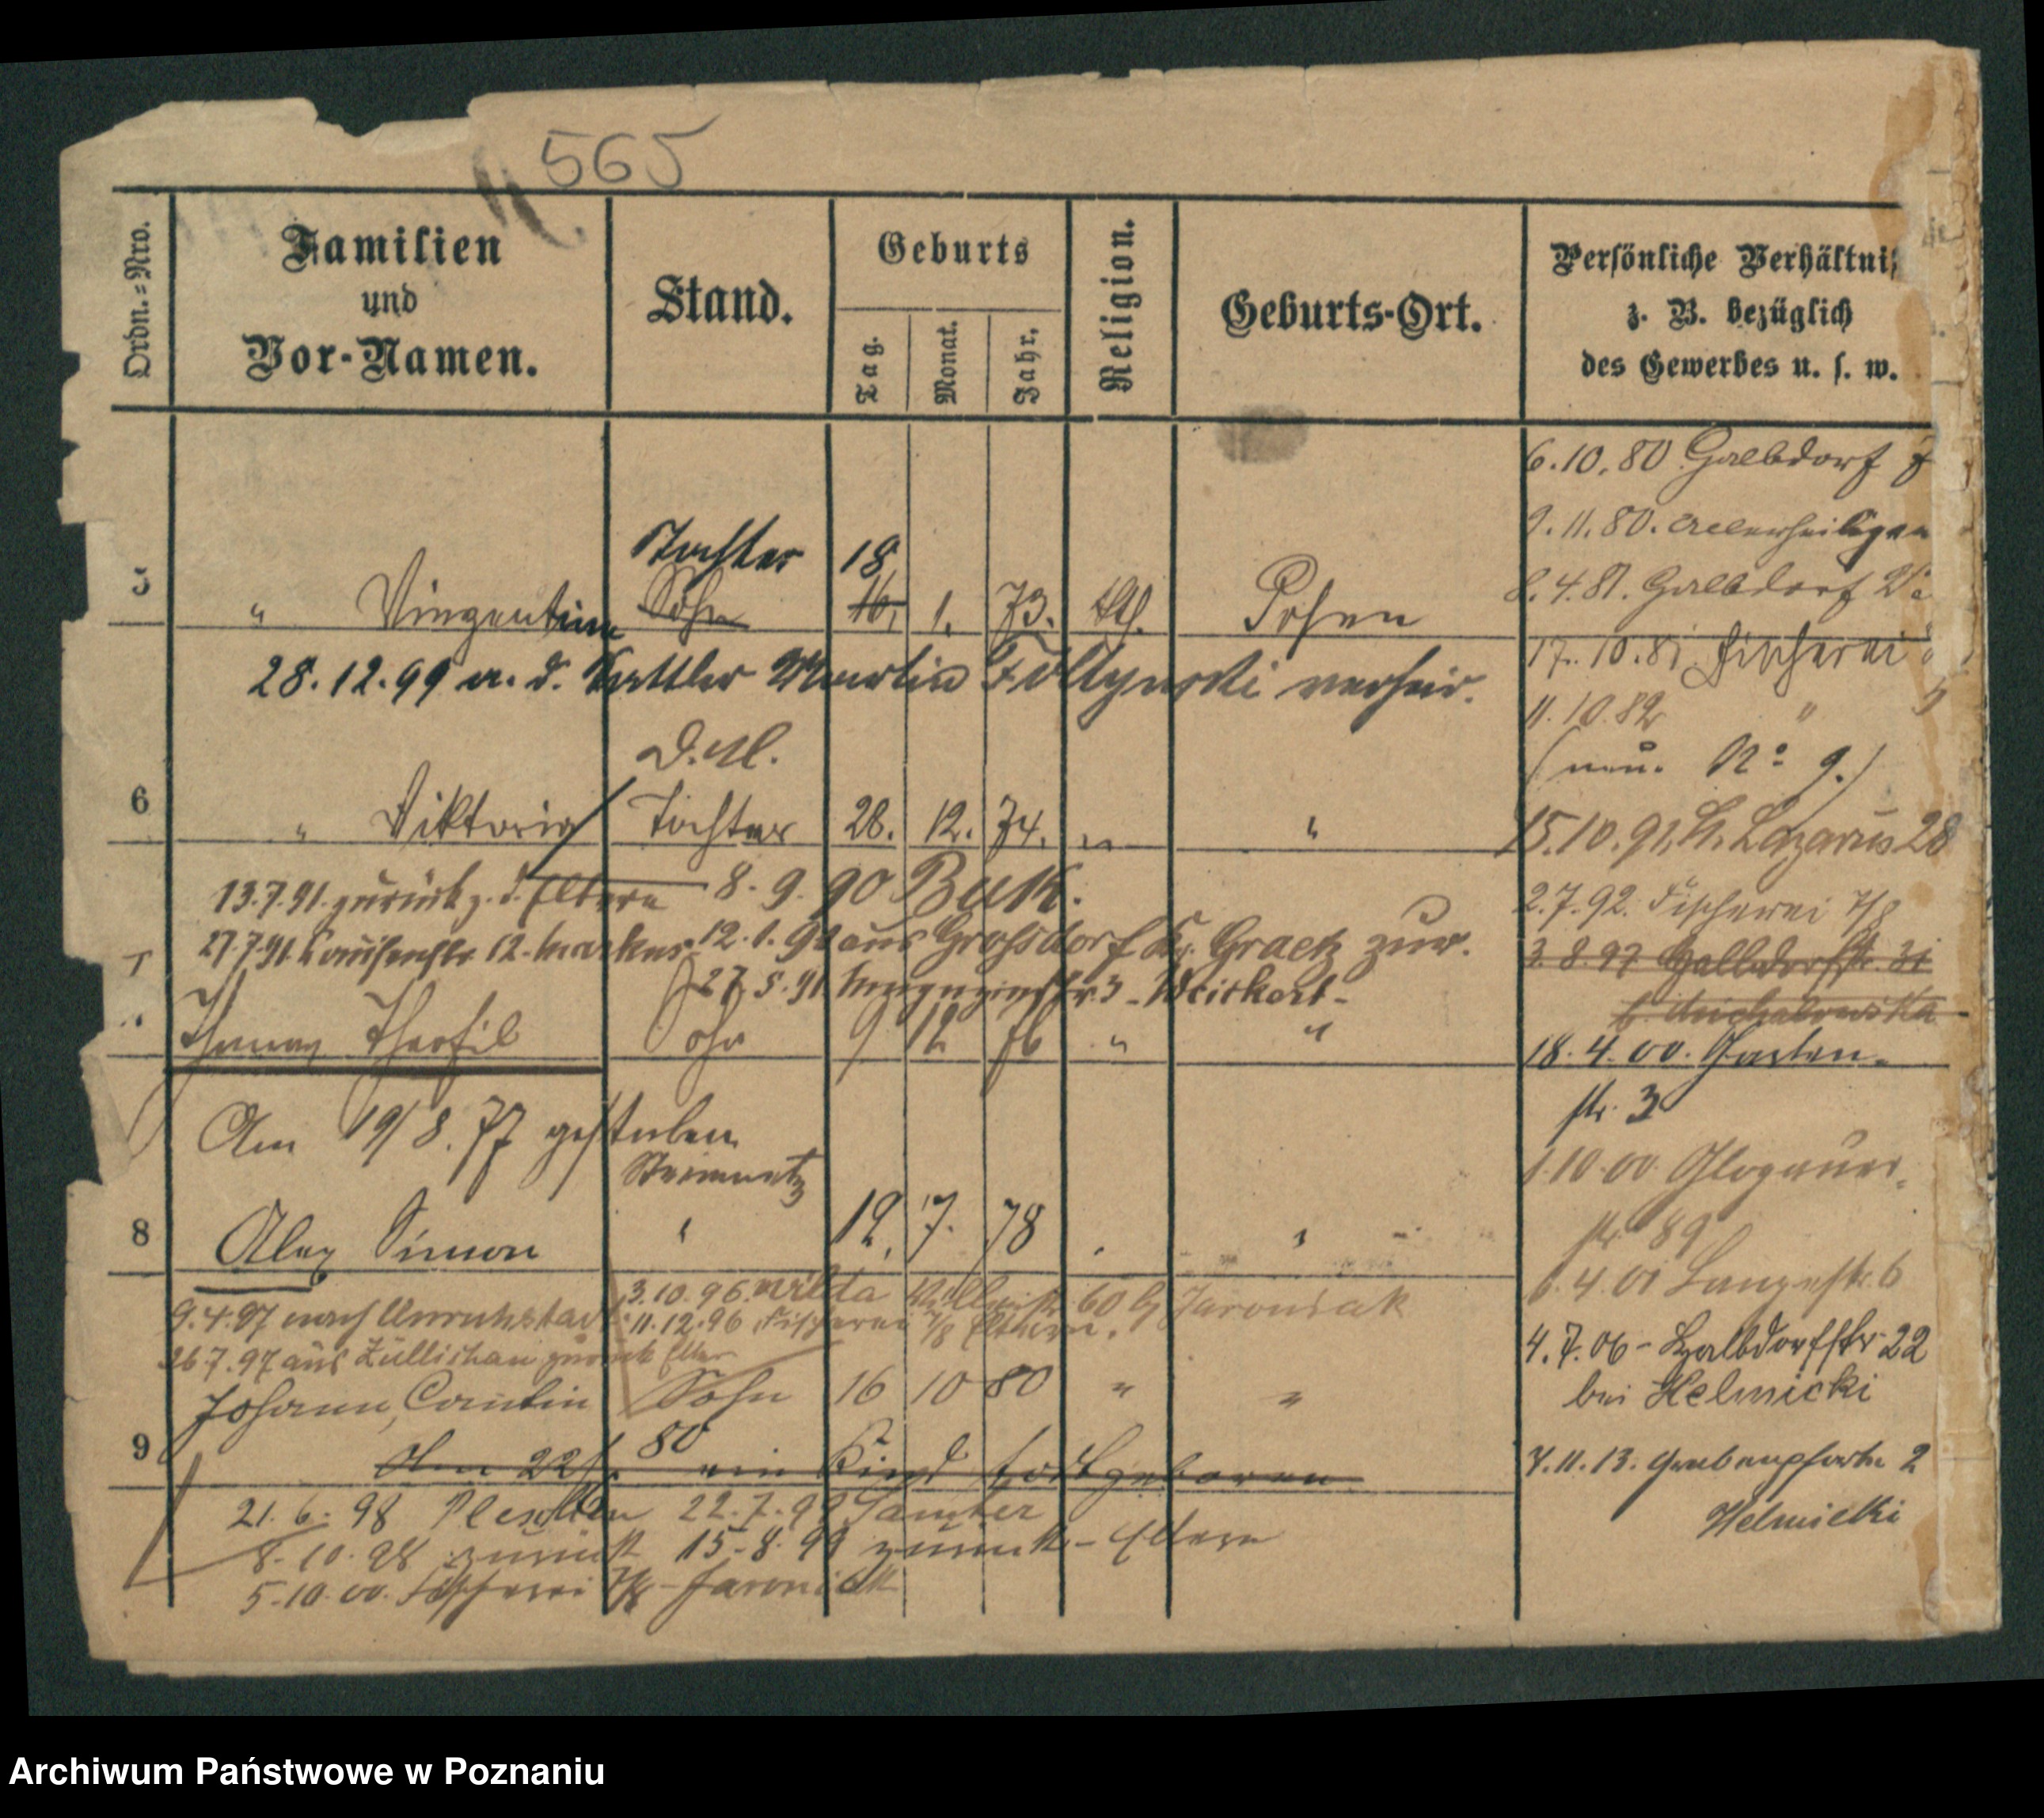 565
Ordn.=Nro.
Familien
und
Vor-Namen.
Stand.
Geburts
Tag.
Monat.
Jahr.
Religion.
Geburts-Ort.
Persönliche Verhältnis
z. B. bezüglich
des Gewerbes u. s. w.
6.10.80 Halbdorf
9.11.80. Allerheiligen
8.4.81. Halbdorf
Tochter 18
5 " Vinzentine Sohn 16. 1. 73. Kth. Posen
17.10.81 Fischerei
28.12.99 a. d. Sattler Martin Foltynski verheir.
11.10.82 "
D.M.
(neu. No 9.)
6 " Viktoria Tochter 28. 12. 74. " "
15.10.91. St. Lazarus 28
13.7.91. zurück z. d. Eltern 8.9.90 Buk.
2.7.92. Fischerei 7/8
27.7.91. Louisenstr. 12. Markus 12.1.91 aus Grossdorf Kr. Graetz zur.
3.8.97 Halbdorfstr. 31
27.5.91 3 - Weickert -
b. Michalowska
7 " Thomas Theofil Sohn 9 12 76 " "
18.4.00. Garten-
str. 3
Am 19/8.77 gestorben
Steinmetz
1.10.00 Glogauer-
str. 89
8 Alex Simon " 12. 7. 78 " "
1.4.01 Langestr. 6
3.10.96. Wilda 60 b/ Jaroniak
9.4.97 nach Unruhstadt 11.12.96 Fischerei 7/8 Eltern.
26.7.97 aus Züllichau zurück Elter
4.7.06 - Halbdorfstr 22
bei Helmicki
Johann, Cantin Sohn 16 10 80 " "
9 Am 22/. 80 ein Kind todtgeboren
7.11.13. Grabenpforte 2
Helmicki
21.6.98 Pleschen 22.7.99 Samter
8.10.98 zurück 15.8.99 zurück - Eltern
5.10.00. Fischerei 7/8 - Jaroniak
Archiwum Państwowe w Poznaniu